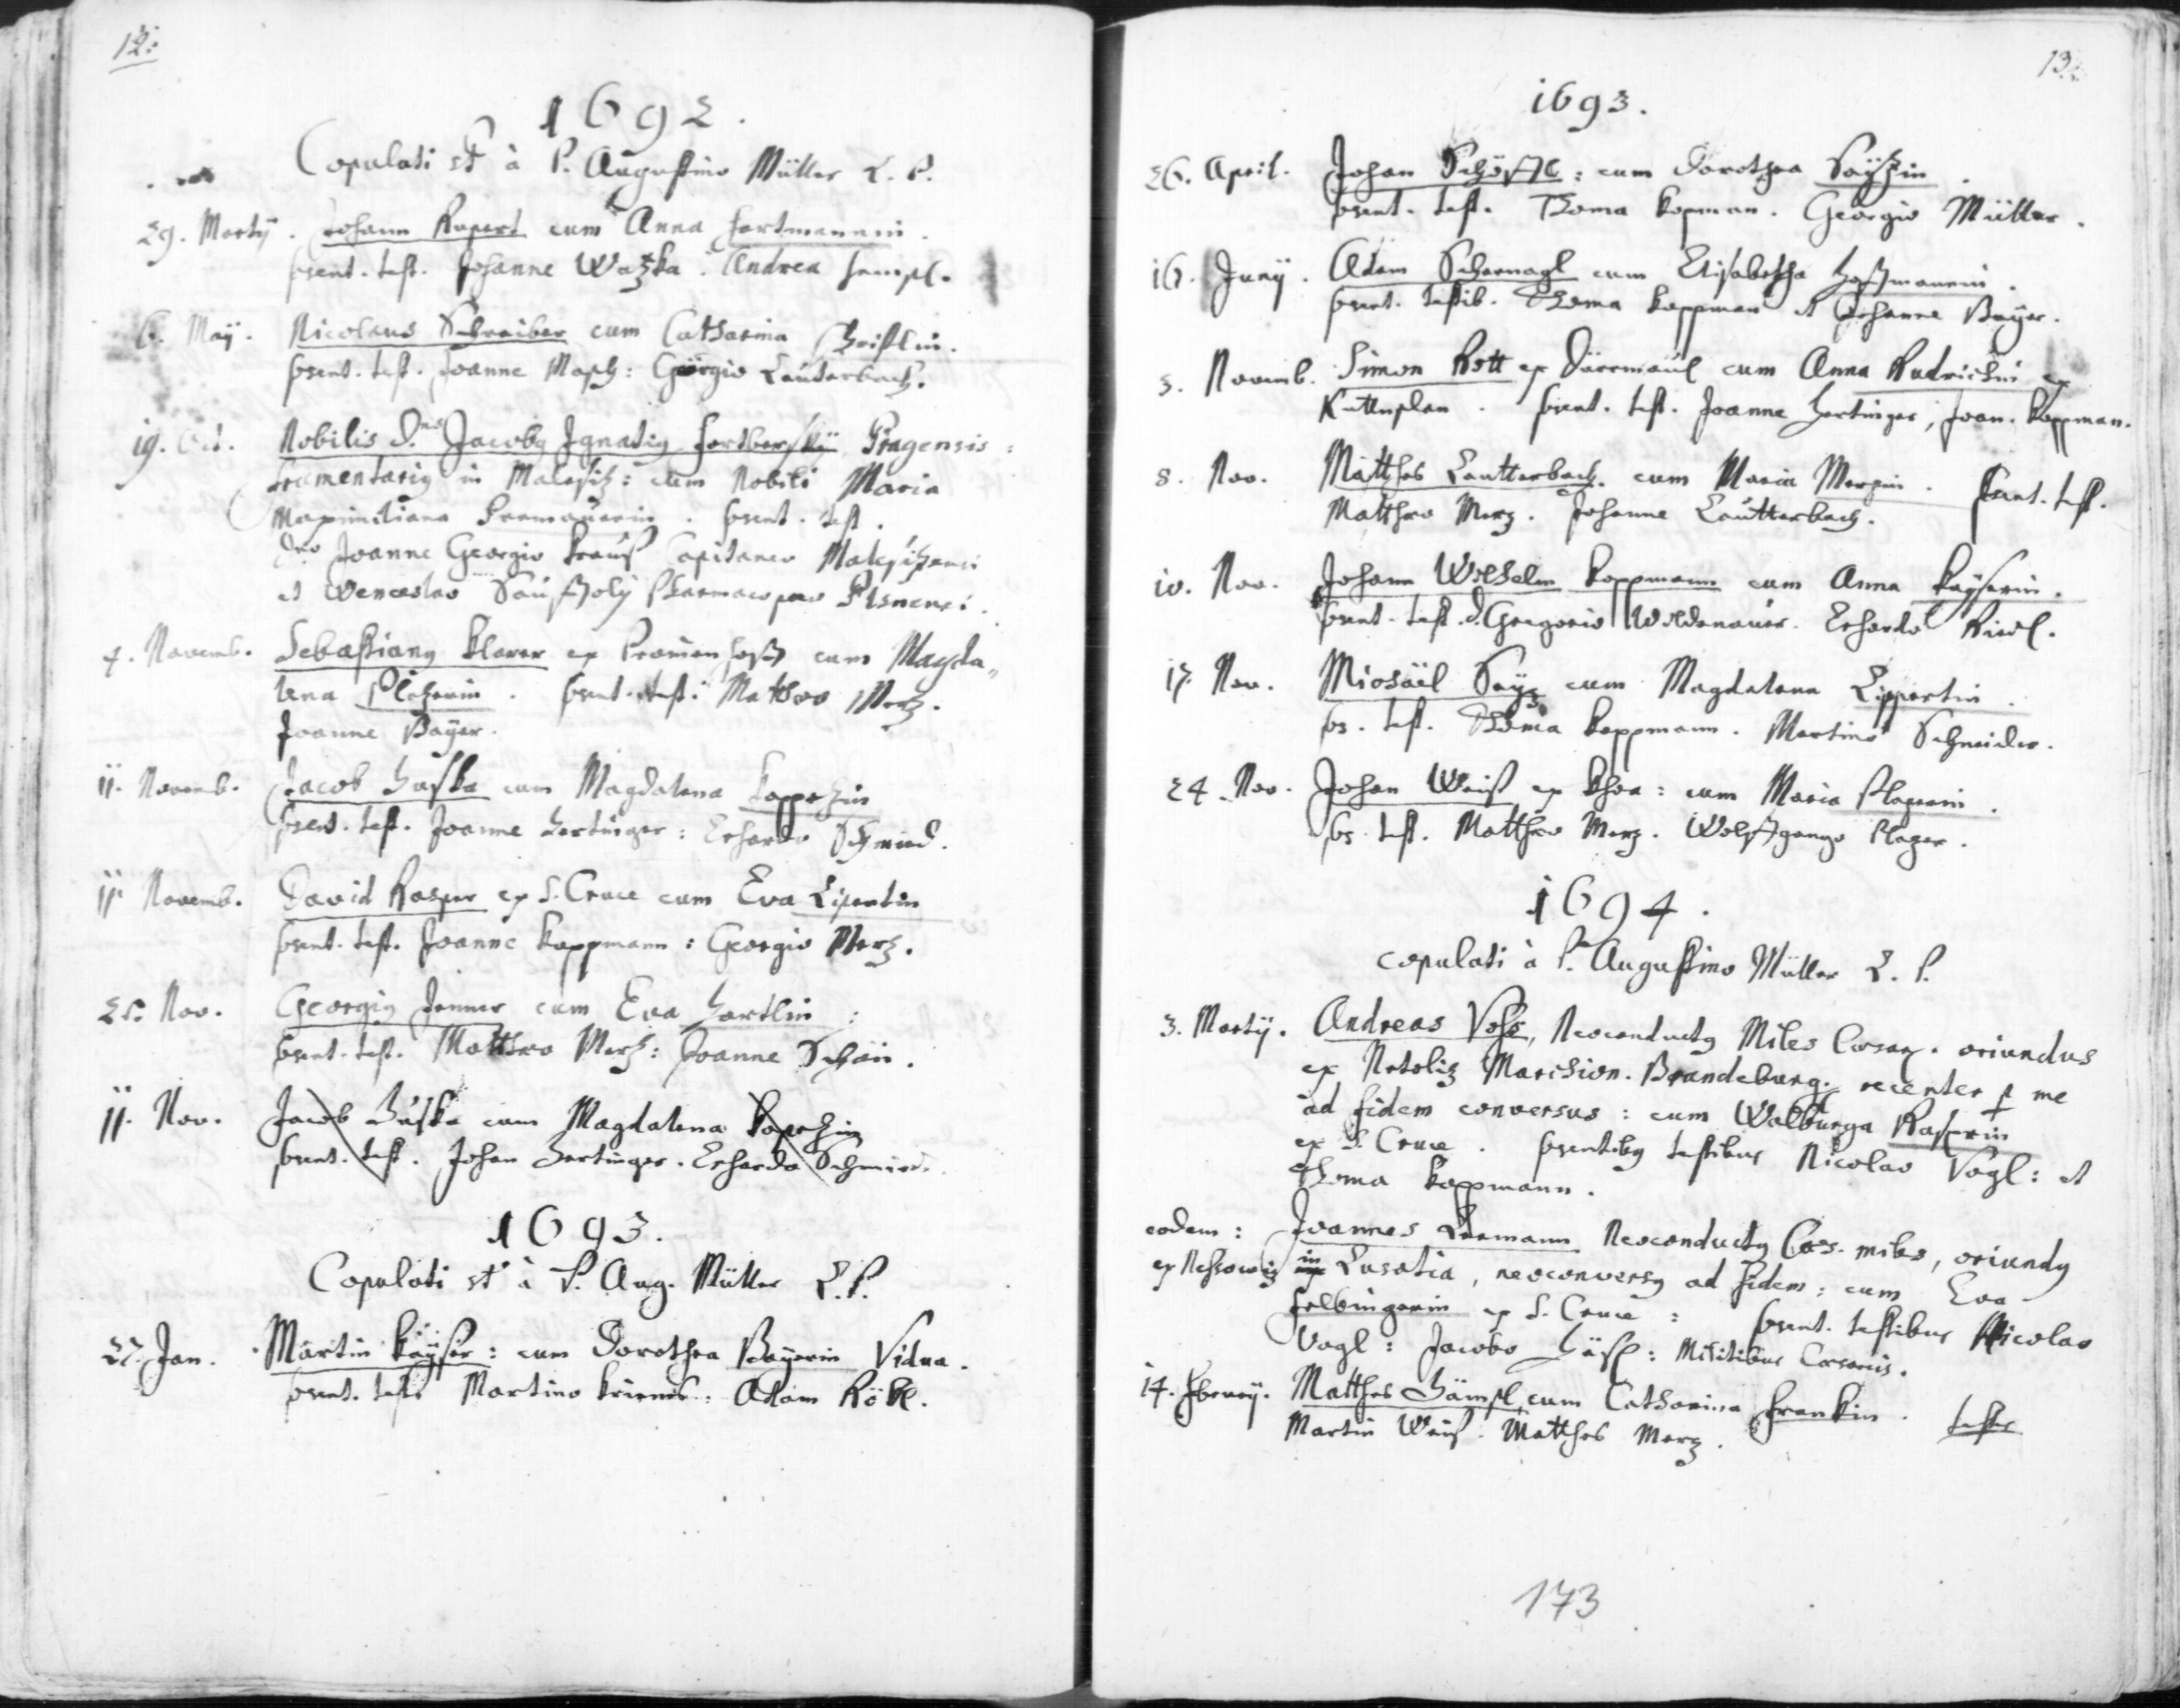 12.
1692.
Copulati st à P. Augustino Müller L. P.
29. Martÿ. Johann Rupert cum Anna Hartmannin.
psent. test. Johanne Watzka. Andrea Hampl.
6. Maÿ. Nicolaus Schreiber cum Catharina Christlin.
psent. test. Joanne Mayh: Georgio Lauterbach.
19. Oct. Nobilis D.nus Jacobq Ignatiq Hartberskÿ Pragensis
frumentariq in Malesitz: cum Nobili Maria
Maximiliana. psent. test.
Dno Joanne Georgio Krauß Capitaneo Malesitzensi
et Wenceslao Pharmacopaeo Plsnensi.
4. Novemb. Sebastianq Klarer ex cum Magda„
lena. psent. test. Mattheo Mertz.
Joanne Bayer.
11. Novemb. Jacob Huska cum Magdalena
psent. test. Joanne Hartinger: Erhardo Schmied.
11. Novemb. David Rasper ex S. Cruce cum Eva Lipertin
psent. test. Joanne Koppmann: Georgio Mertz.
25. Nov. Georgiq Jenner cum Eva Hartlin:
psent. test. Mattheo Mertz: Joanne Schön.
11. Nov. Jacob Huska cum Magdalena
psent. test. Johan Hartinger. Erhardo Schmied.
1693.
Copulati st à P. Aug. Müller L. P.
27. Jan. Martin Kaÿser: cum Dorothea Bayerin Vidua.
psent. test. Martino: Adam Rökl.
13.
1693.
26. April. Johan: cum Dorothea
psent. test. Thoma Kopman. Georgio Müller.
16. Junÿ. Adam Schernagl cum Elisabetha Hoffmannin.
psent. testib. Thoma Koppman et Johanne Bayer.
3. Novemb. Simon Rott ex Dürrmaul cum Anna Rudrichin ex
Kuttnplan. psent. test. Joanne Hartinger, Joan. Koppman.
8. Nov. Matthes Lautterbach. cum Maria Merzin. psent. test.
Mattheo Merz. Johanne Lautterbach.
10. Nov. Johann Wilhelm Koppmann cum Anna Kaÿserin.
psent. test. d. Gregorio Wildenauer. Erhardo Riedl.
17. Nov. Michäel Saÿz cum Magdalena Lippertin.
ps. test. Thoma Koppmann. Martino Schneider.
24. Nov. Johan Weiß ex Khoa: cum Maria Plagerin.
ps. test. Mattheo Merz. Wolffgango Plager.
1694.
copulati à P. Augustino Müller L. P.
3. Martÿ. Andreas Vohs, Neoconductq Miles Caesar. oriundus
ex Marchion. Brandeburg. recenter p me
ad fidem conversus: cum Walburga Rasperin
ex S. Cruce. psentibq testibus Nicolao Vogl: et
Thoma Koppmann.
eodem: Joannes Neoconductq Caes. miles, oriundq
ex in Lusatia, neoconversq ad fidem: cum Eva
Helbingerin ex S. Cruce: psent. testibus Nicolao
Vogl: Jacobo: Militibus Caesareis.
14. Matthes Hämpl, cum Catharina Frankin. testes
Martin Weiß. Matthes Merz.
173